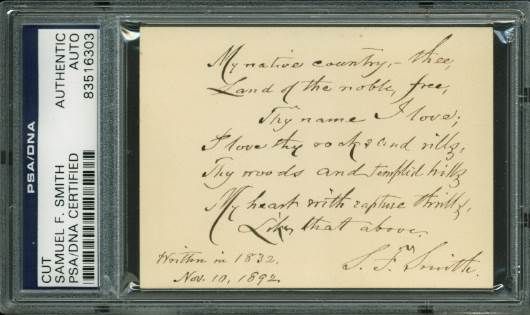 PSA/DNA
CUT
SAMUEL F. SMITH
PSA/DNA CERTIFIED
AUTHENTIC
AUTO
83516303
My native country, - thee,
Land of the noble, free,
Thy name I love;
I love thy rocks and rills,
Thy woods and templed hills
My heart with rapture thrills,
Like that above.
Written in 1832.
Nov. 10, 1892.
S. F. Smith.